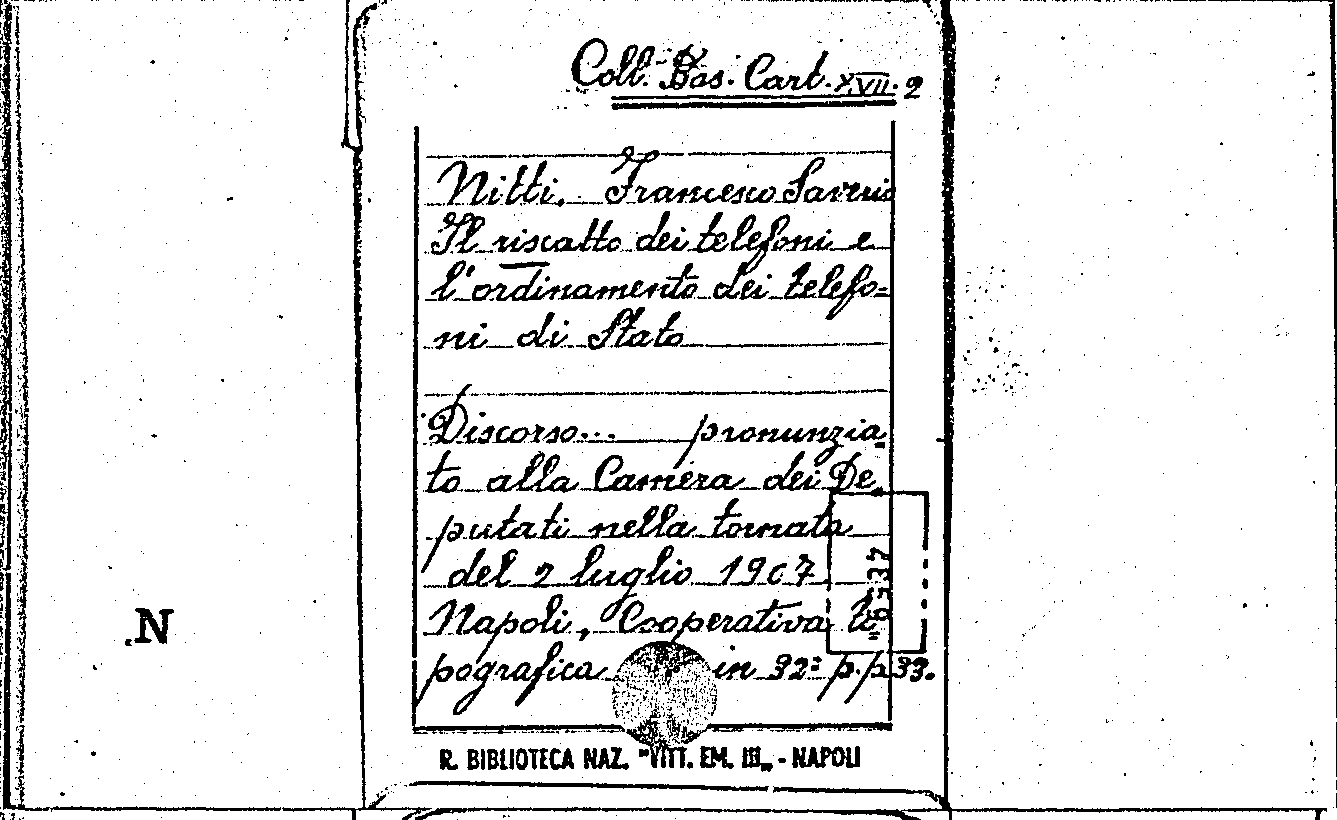 Coll. Bas. Cart. XVII. 2
Nitti. Francesco Saverio
Il riscatto dei telefoni e
l'ordinamento dei telefo=
ni di Stato
Discorso... pronunzia=
to alla Camera dei De
putati nella tornata
del 2 luglio 1907
Napoli, Cooperativa ti=
pografica in 32° p.p 33.
R. BIBLIOTECA NAZ. "VITT. EM. III„ - NAPOLI
N